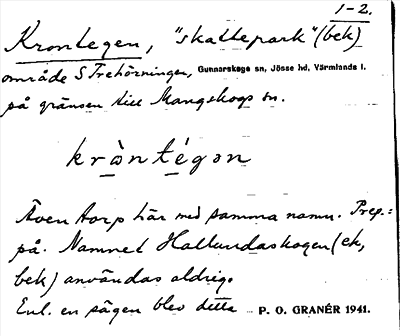 1-2.
Krontegen, "skattepark" (bek)
område S Trehörningen, Gunnarskogs sn, Jösse hd, Värmlands l.
på gränsen till Mangskogs sn.
kràntégən
Även torp här med samma namn. Prep.:
på. Namnet Hallundaskogen (ek,
bek) användas aldrig.
Enl. en sägen blev detta
P. O. GRANÉR 1941.